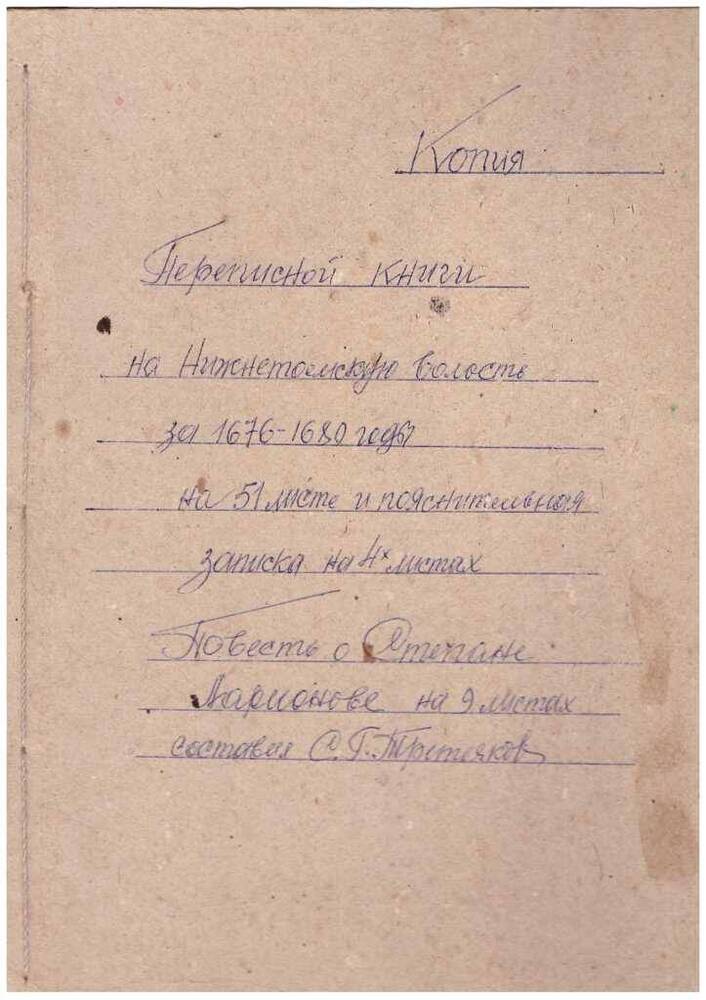 Копия
Переписной книги
на Нижнетоемскую волость
за 1676-1680 годы
на 51 листе и пояснительная
записка на 4х листах
Повесть о Степане
Ларионове на 9 листах
составил С. Г. Третьяков